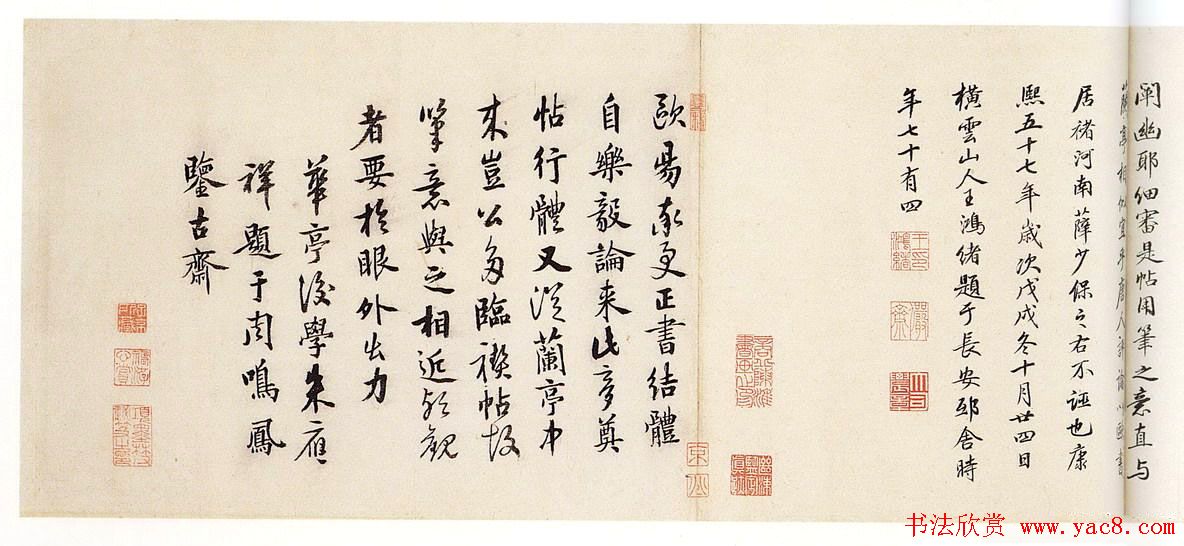 闡幽耶細審是帖用筆之意直与
蘭亭相似宜乎唐人評論書
居褚河南薛少保之右不誣也康
熙五十七年歲次戊戌冬十月廿四日
橫雲山人王鴻緒題于長安邸舍時
年七十有四
王印鴻緒
儼齋
歐昜率更正書結體
自樂毅論来此夢奠
帖行體又從蘭亭中
来豈公多臨禊帖故
筆意與之相近欤觀
者要於眼外出力
華亭後學朱應
祥題于周鳴鳳
鑒古齋
书法欣赏 www.yac8.com